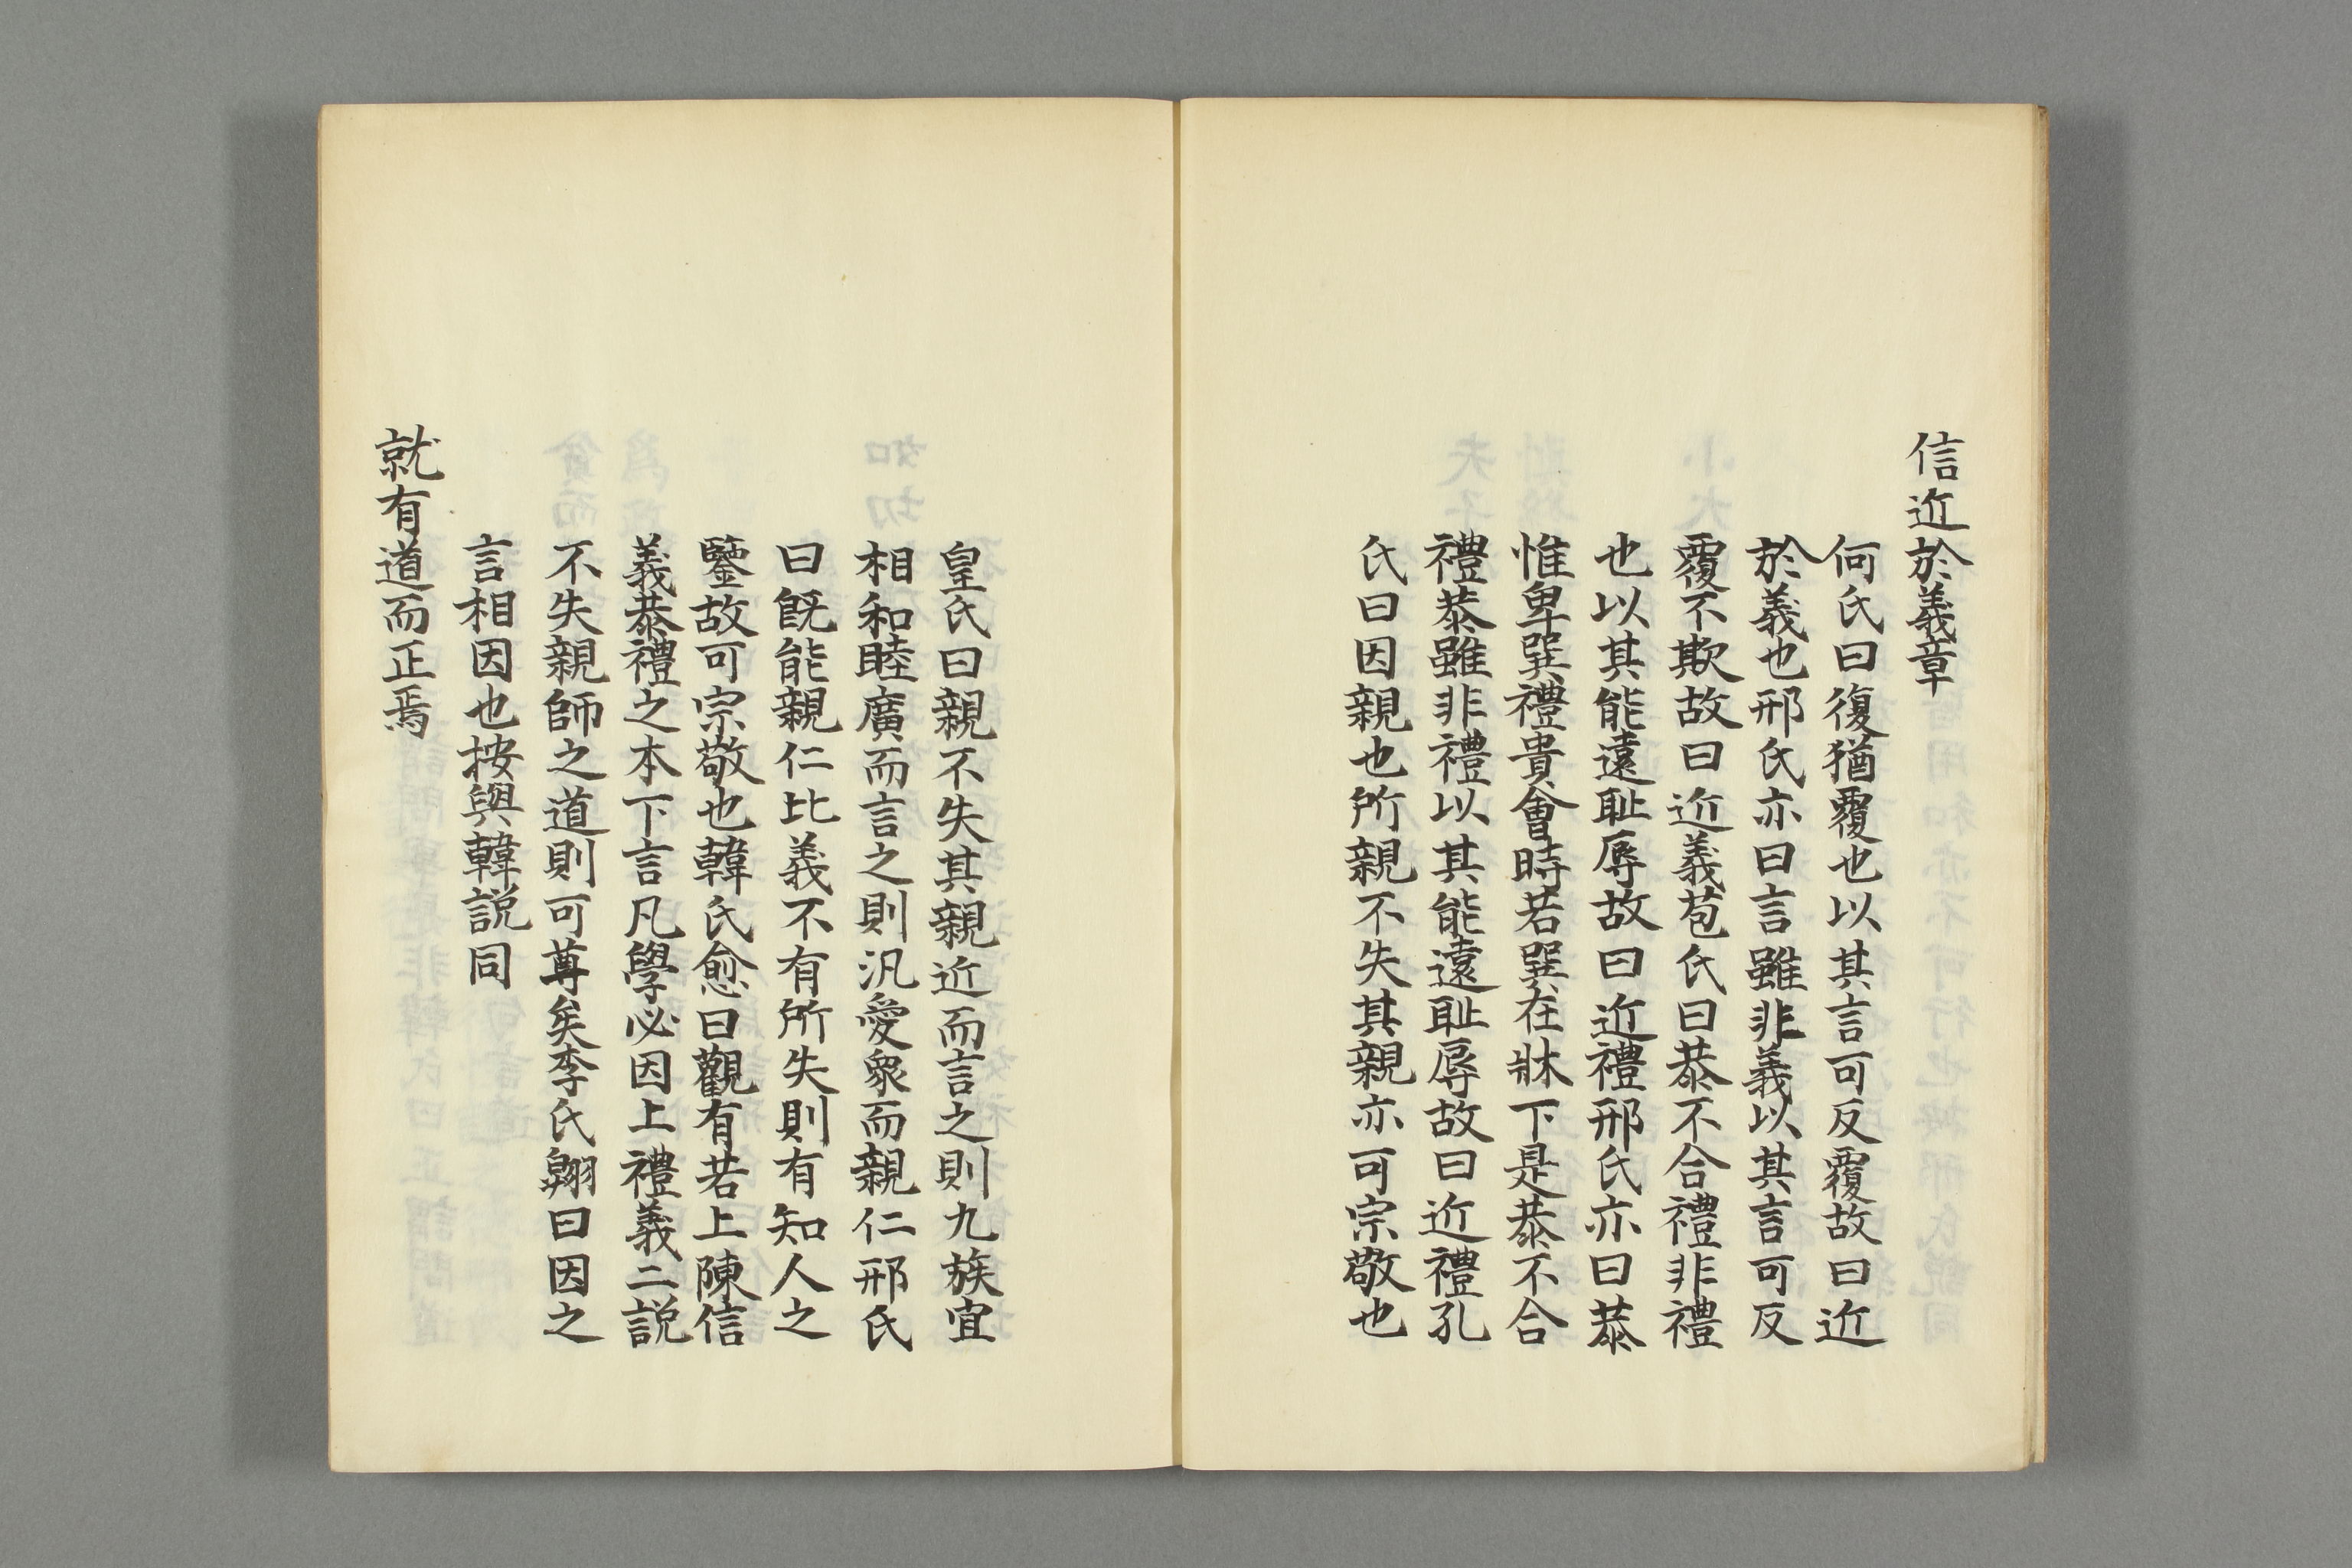 信近於義章
何氏曰復猶覆也以其言可反覆故曰近
於義也邢氏亦曰言雖非義以其言可反
覆不欺故曰近義苞氏曰恭不合禮非禮
也以其能遠耻辱故曰近禮邢氏亦曰恭
惟卑巽禮貴會時若巽在牀下是恭不合
禮恭雖非禮以其能遠耻辱故曰近禮孔
氏曰因親也所親不失其親亦可宗敬也
皇氏曰親不失其親近而言之則九族宜
相和睦廣而言之則汎愛衆而親仁邢氏
曰既能親仁比義不有所失則有知人之
鑒故可宗敬也韓氏愈曰觀有若上陳信
義恭禮之本下言凡學必因上禮義二説
不失親師之道則可尊矣李氏翱曰因之
言相因也按與韓説同
就有道而正焉